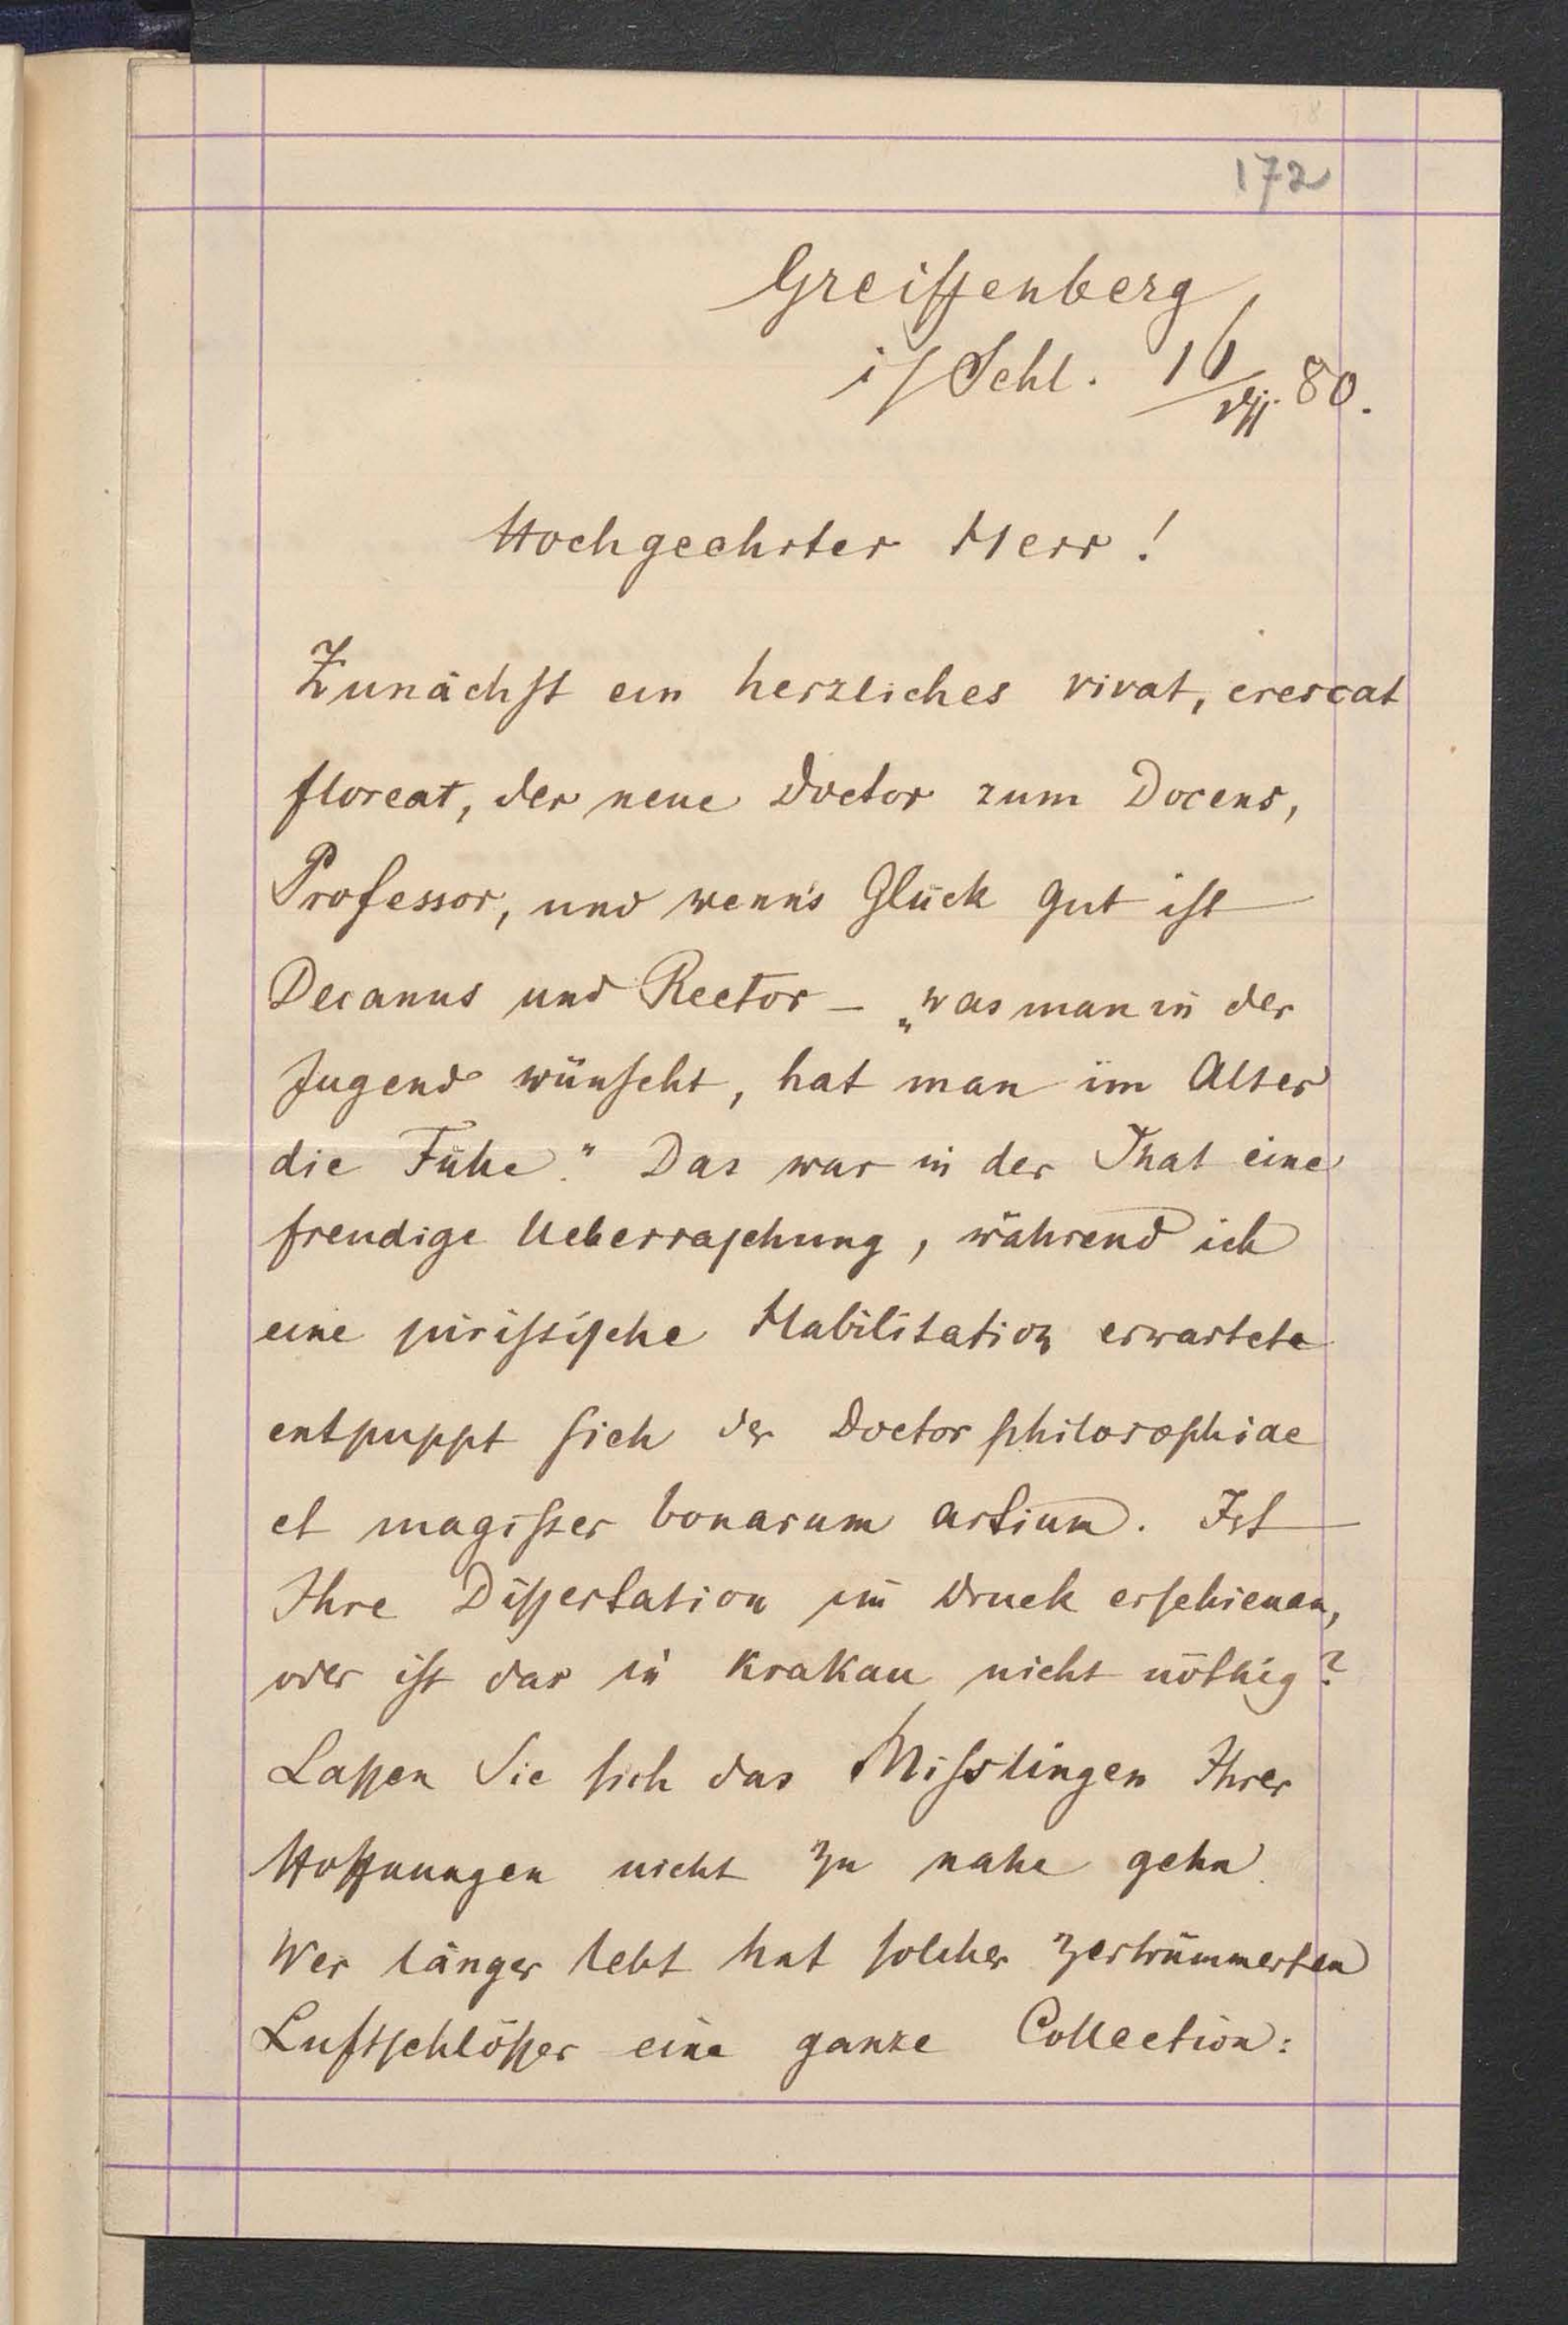 172
Greiffenberg
i/Schl. 16/VII. 80.
Hochgeehrter Herr!
Zunächst ein herzliches vivat, crescat
floreat, der neue Doctor zum Docens,
Professor, und wenn's Glück gut ist
Decanus und Rector – „was man in der
Jugend wünscht, hat man im Alter
die Fühe." Das war in der That eine
freudige Ueberraschung, während ich
eine juristische Habilitation erwartete
entpuppt sich der Doctor philosophiae
et magister bonarum artium. Ist
Ihre Dissertation im Druck erschienen,
oder ist das in Krakau nicht nöthig?
Lassen Sie sich das Misslingen Ihrer
Hoffnungen nicht zu nahe gehn.
Wer länger lebt hat solcher zertrümmerten
Luftschlösser eine ganze Collection: